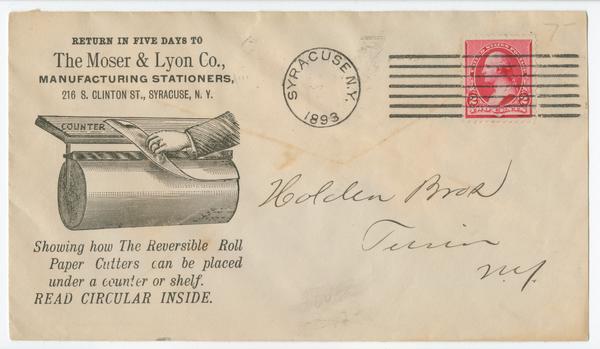 RETURN IN FIVE DAYS TO
The Moser & Lyon Co.,
MANUFACTURING STATIONERS,
216 S. CLINTON ST., SYRACUSE, N. Y.
COUNTER
Showing how The Reversible Roll
Paper Cutters can be placed
under a counter or shelf.
READ CIRCULAR INSIDE.
SYRACUSE N.Y.
1893
2 2
Holden Bros
Turin
N.Y.